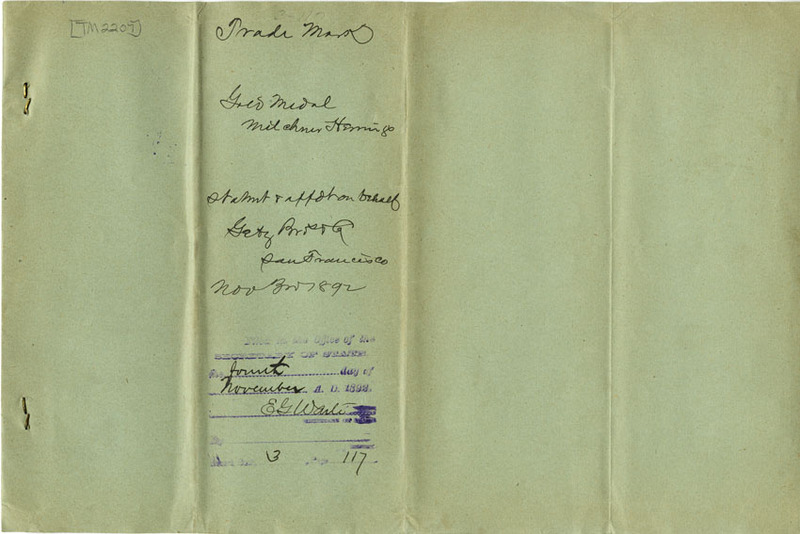 [TM2207]
Trade Mark
Gold Medal
Milchner Herrings
Statmt & affdt on behalf
Getz Bros & Co
San Francisco
Nov 3rd 1892
Filed in the Office of the
SECRETARY OF STATE
fourth day of
November A. D. 1892.
E G Waite
SECRETARY OF STATE
By
3 117